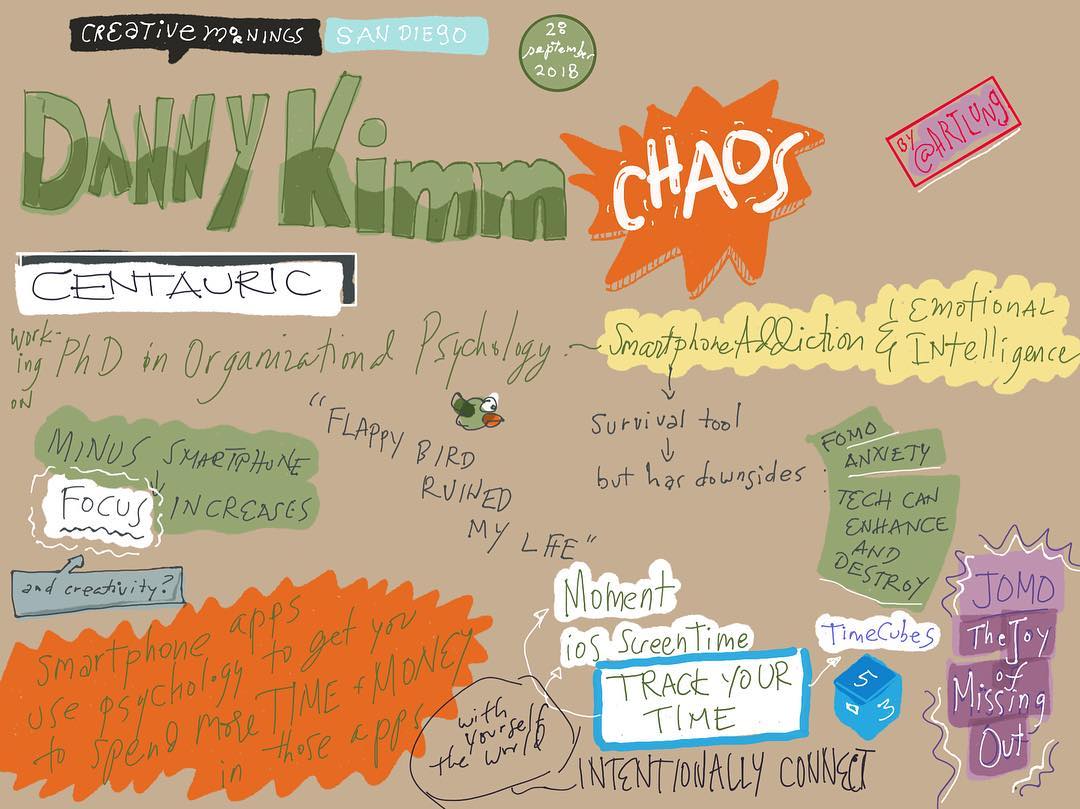 CREATIVE MORNINGS
SAN DIEGO
28
september
2018
DANNY Kimm
CHAOS
BY
@ARTLUNG
CENTAURIC
work-
ing
on
PhD in Organizational Psychology
Smartphone Addiction & Emotional
Intelligence
Survival tool
but has downsides
FOMO
ANXIETY
TECH CAN
ENHANCE
AND
DESTROY
MINUS SMARTPHONE
FOCUS INCREASES
and creativity?
"FLAPPY BIRD
RUINED
MY LIFE"
Smartphone apps
use psychology to get you
to spend more TIME + MONEY
in those apps
Moment
ios ScreenTime
TRACK YOUR
TIME
TimeCubes
5
3
with
yourself
the world
INTENTIONALLY CONNECT
JOMO
The Joy
of
Missing
Out